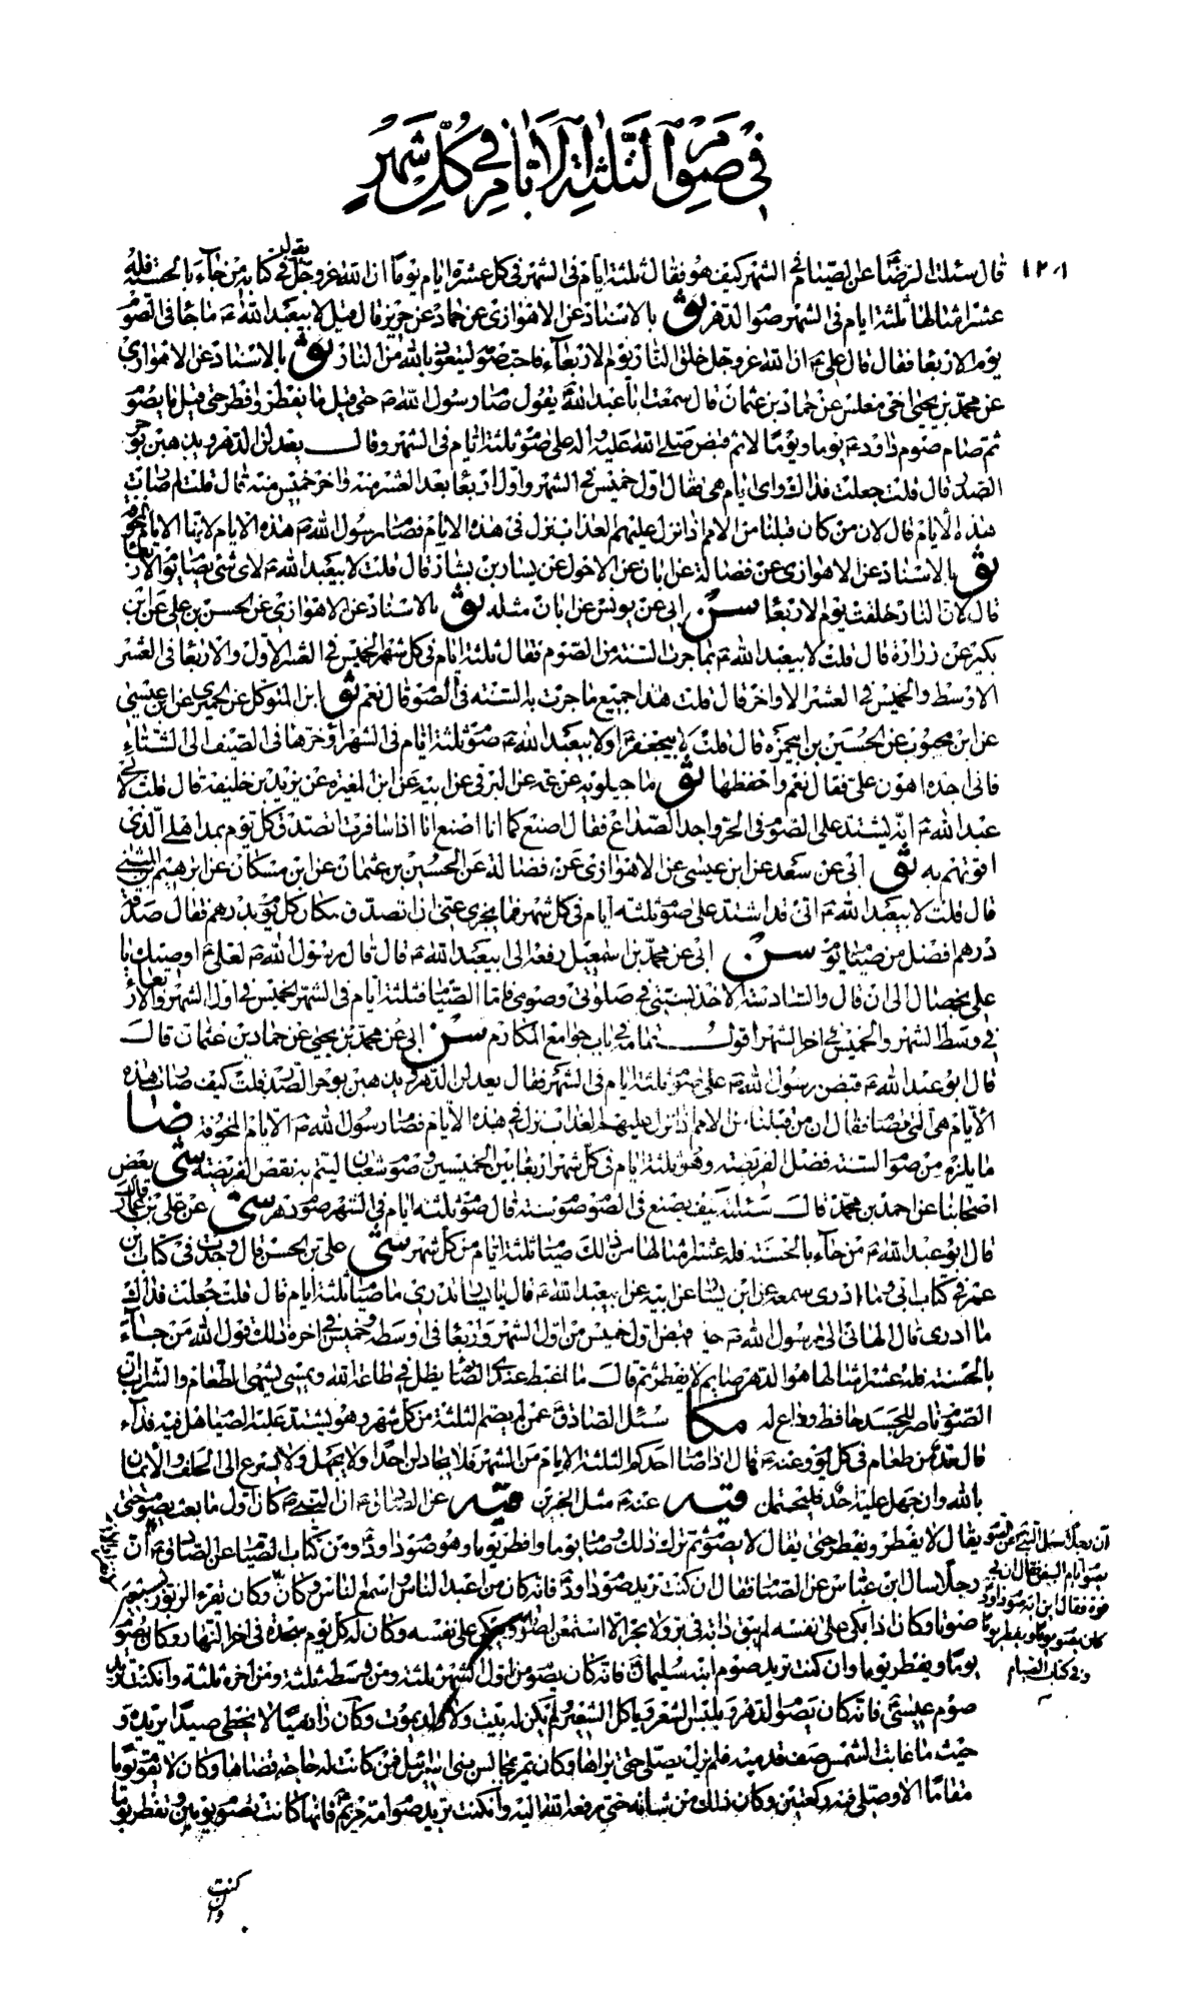 في صوم الثلثة الايام في كل شهر
١٢٠١
قال سئلت الرضا عن الصيام في الشهر كيف هو فقال ثلثة ايام في الشهر في كل عشرة ايام يوما ان الله عز وجل يقول في كتابه من جاء بالحسنة فله
عشر امثالها ثلثة ايام في الشهر صوم الدهر ثو بالاسناد عن الاهوازي عن حماد عن حريز قال قيل لابيعبد الله ع ما جاء في الصوم
يوم الاربعا فقال قال علي ع ان الله عز وجل خلق النار يوم الاربعاء فاحب صومه ليتعوذ بالله من النار ثو بالاسناد عن الاهوازي
عن محمد بن يحيى اخي مغلس عن حماد بن عثمان قال سمعت ابا عبد الله يقول صام رسول الله ص حتى قيل ما يفطر وافطر حتى قيل ما يصوم
ثم صام صوم داود ع يوما ويوما لا ثم قبض صلى الله عليه واله على صوم ثلثة ايام في الشهر وقال يعدلن الدهر ويذهبن بوحر
الصدر قال قلت جعلت فداك واي ايام هي فقال اول خميس في الشهر واول اربعا بعد العشر منه واخر خميس منه قال قلت لم صارت
هذه الايام قال لان من كان قبلنا من الامم اذا نزل عليهم العذاب نزل في هذه الايام فصام رسول الله ص هذه الايام لانها الايام المخوفة
ثو بالاسناد عن الاهوازي عن فضالة عن ابان عن الاحول عن بشار بن يسار قال قلت لابيعبد الله ع لاي شئ يصام يوم الاربعا
قال لان النار خلقت يوم الاربعا سن ابي عن يونس عن ابان مثله ثو بالاسناد عن الاهوازي عن الحسن بن علي عن ابن
بكير عن زرارة قال قلت لابيعبد الله ع بما جرت السنة من الصوم فقال ثلثة ايام في كل شهر الخميس في العشر الاول والاربعا في العشر
الاوسط والخميس في العشر الاواخر قال قلت هذا جميع ما جرت به السنة في الصوم قال نعم ثو ابن المتوكل عن الحميري عن ابن عيسى
عن ابن محبوب عن الحسين بن ابيحمزة قال قلت لابيجعفر ع او لابيعبد الله ع صوم ثلثة ايام في الشهر اؤخرها في الصيف الى الشتاء
فاني اجده اهون علي فقال نعم واحفظها ثو ماجيلويه عن عمه عن البرقي عن ابيه عن ابن المغيرة عن يزيد بن خليفة قال قلت لابي
عبد الله ع انه يشتد علي الصوم في الحر واجد الصداع فقال اصنع كما انا اصنع انا اذا سافرت تصدق كل يوم بمد اهلي الذي
اقوتهم به ثو ابي عن سعد عن ابن عيسى عن الاهوازي عن فضالة عن الحسين بن عثمان عن ابن مسكان عن ابرهيم بن المثنى
قال قلت لابيعبد الله ع اني قد اشتد علي صوم ثلثة ايام في كل شهر فما يجزي عني ان اتصدق مكان كل يوم بدرهم فقال صدقة
درهم افضل من صيام يوم سن ابي عن محمد بن اسمعيل رفعه الى ابيعبد الله ع قال قال رسول الله ص لعلي ع اوصيك يا
علي بخصال الى ان قال والسادسة الاخذ بسنتي في صلوتي وصومي فاما الصيام فثلثة ايام في الشهر الخميس في اول الشهر والاربعاء
في وسط الشهر والخميس في اخر الشهر اقول تمامه في باب جوامع المكارم سن ابي عن محمد بن يحيى عن حماد بن عثمان قال
قال ابو عبد الله ع قبض رسول الله ص على صوم ثلثة ايام في الشهر فقال يعدلن الدهر ويذهبن بوحر الصدر قلت كيف صارت هذه
الايام هي التي تصام فقال ان من قبلنا من الامم اذا نزل عليهم العذاب نزل في هذه الايام فصام رسول الله ص الايام المخوفة ضا
ما يلزم من صوم السنة فضل الفريضة وهو ثلثة ايام في كل شهر اربعا بين الخميسين وصوم شعبان ليتم به نقص الفريضة شى بعض
اصحابنا عن احمد بن محمد قال سئلته كيف يصنع في الصوم صوم السنة قال صوم ثلثة ايام في الشهر صوم دهر شى عن علي بن عمار قال
قال ابو عبد الله ع من جاء بالحسنة فله عشر امثالها من ذلك صيام ثلثة ايام من كل شهر شى علي بن الحسن قال وجدت في كتاب ابن
ما ادري قال اتاني رسول الله ص حين قبض اول خميس من اول الشهر واربعا في اوسطه وخميس في اخره ذلك قول الله من جاء
بالحسنة فله عشر امثالها هو الدهر صايم لا يفطر ثم قال ما اغبط عندي الصايم يظل في طاعة الله ويمسي يشتهي الطعام والشراب ان
الصوم ناصر للجسد حافظ وراع له مكا سئل الصادق عمن لم يصم الثلثة من كل شهر وهو يشتد عليه الصيام هل فيه فداء
قال مد من طعام في كل يوم وعنه ع قال اذا صام احدكم الثلثة الايام من الشهر فلا يجادلن احدا ولا يجهل ولا يسرع الى الحلف والايمان
بالله وان جهل عليه احد فليحتمل عنه ع مثل الخبرين عن الصادق ع ان النبي ص كان اول ما بعث يصوم حتى
يقال لا يفطر ويفطر حتى يقال لا يصوم ثم ترك ذلك وصام يوما وافطر يوما وهو صوم داود ومن كتاب الصيام عن الصادق ع ان
رجلا سال ابن عباس عن الصيام فقال ان كنت تريد صوم داود فانه كان من اعبد الناس واسمع الناس وكان يقرء الزبور
يوما ويفطر يوما وان كنت تريد صوم ابنه سليمان فانه كان يصوم من اول الشهر ثلثة ومن وسطه ثلثة ومن اخره ثلثة وان كنت تريد
صوم عيسى فانه كان يصوم الدهر ويلبس الشعر وياكل الشعير لم يكن له بيت ولا ولد يموت وكان راميا لا يخطي صيدا يريده و
حيث ما غابت الشمس صف قدميه فلم يزل يصلي حتى يراها وكان يمر بمجالس بني اسرائيل فمن كانت له حاجة قضاها وكان لا يقوم يوما
مقاما الا وصلى فيه ركعتين وكان ذلك من شانه حتى رفعه الله اليه وان كنت تريد صوم امه مريم فانها كانت تصوم يومين وتفطر يوما
وان كنت